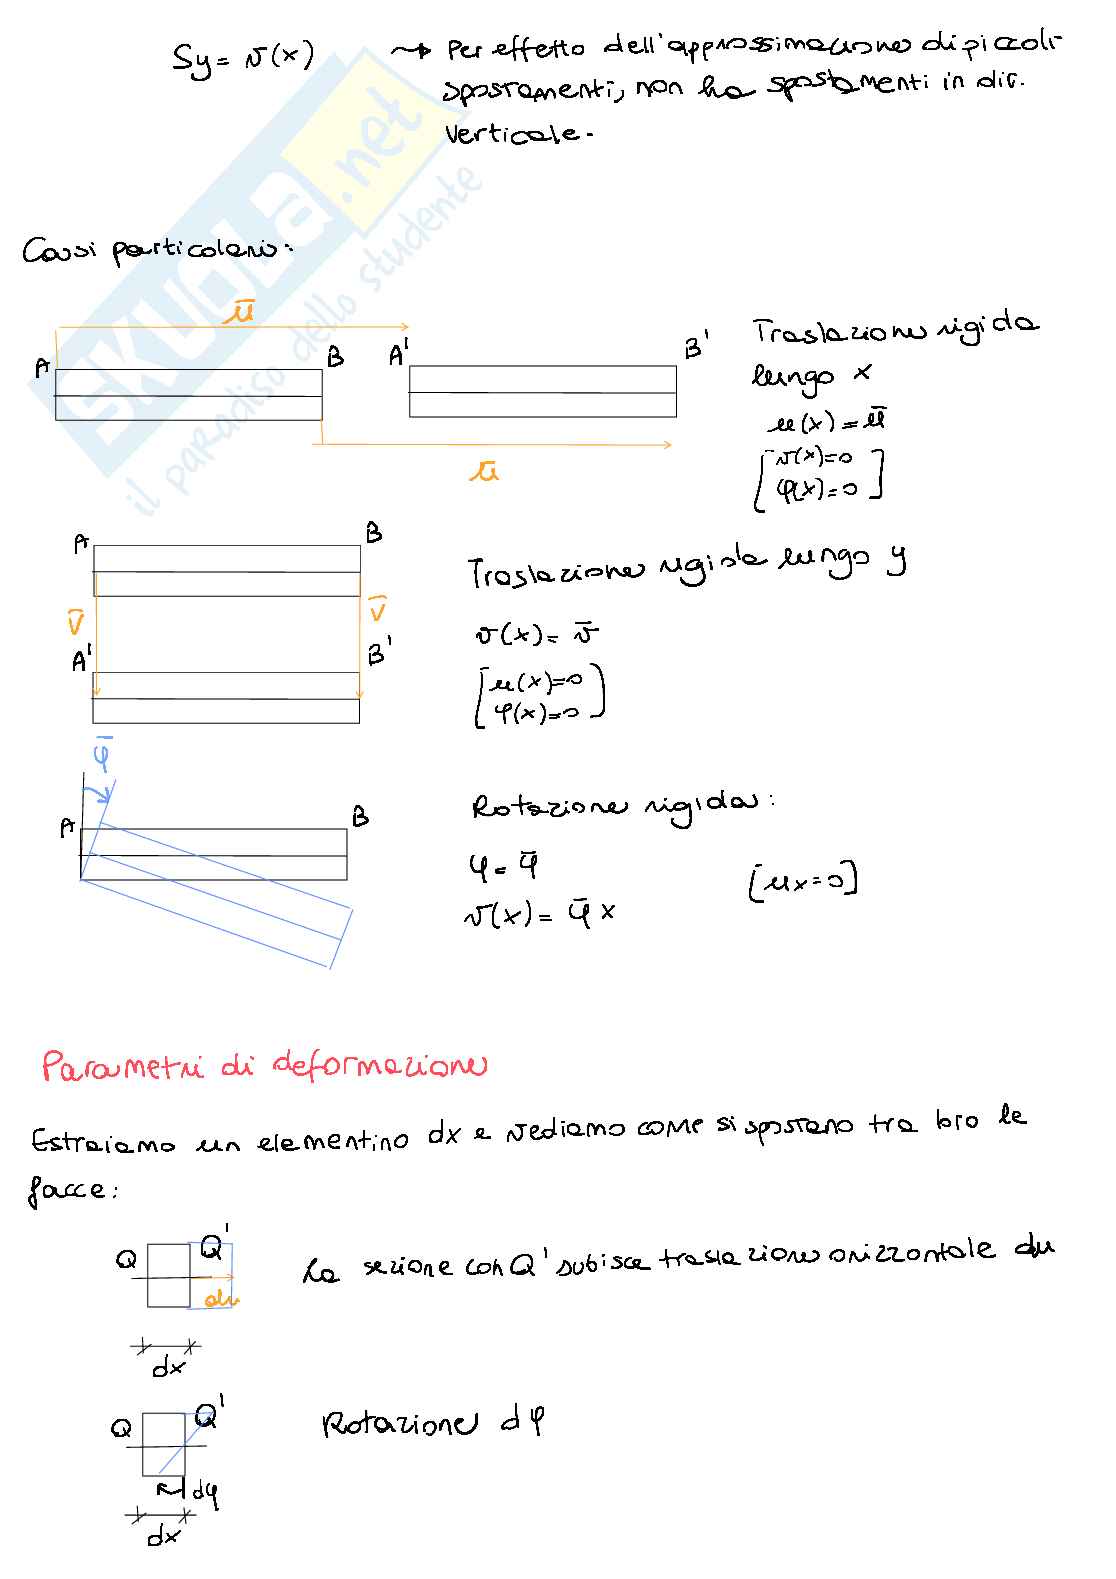 Sy = v(x) → Per effetto dell'approssimazione di piccoli
spostamenti, non ha spostamenti in dir.
verticale.
Casi particolari:
ū
A B A' B'
ū
Traslazione rigida
lungo x
u(x) = ū
[v(x)=0
φ(x)=0]
A B
v̄ v̄
A' B'
Traslazione rigida lungo y
v(x) = v̄
[u(x)=0
φ(x)=0]
φ̄
A B
Rotazione rigida:
φ = φ̄
[ux=0]
v(x) = φ̄ x
Parametri di deformazione
Estraiamo un elementino dx e vediamo come si spostano tra loro le
facce:
Q Q'
du
dx
La sezione con Q' subisce traslazione orizzontale du
Q Q'
dφ
dx
Rotazione dφ
SKUOLA.net
il paradiso dello studente